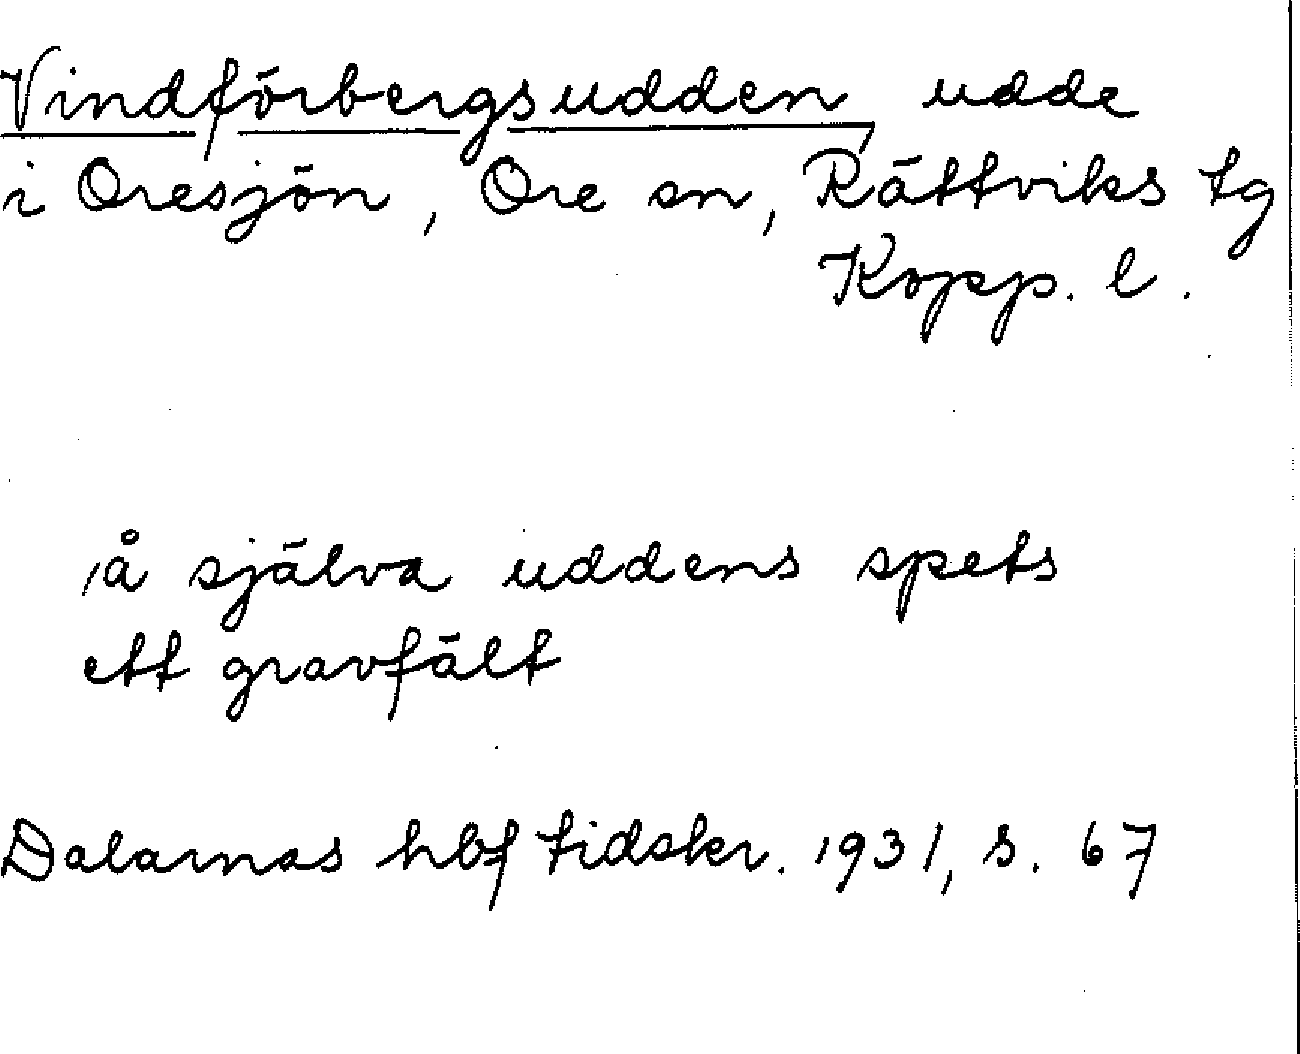 Vindförbergsudden, udde
i Oresjön, Ore sn, Rättviks tg
Kopp. l.
, å själva uddens spets
ett gravfält
Dalarnas hbf tidskr. 1931, s. 67